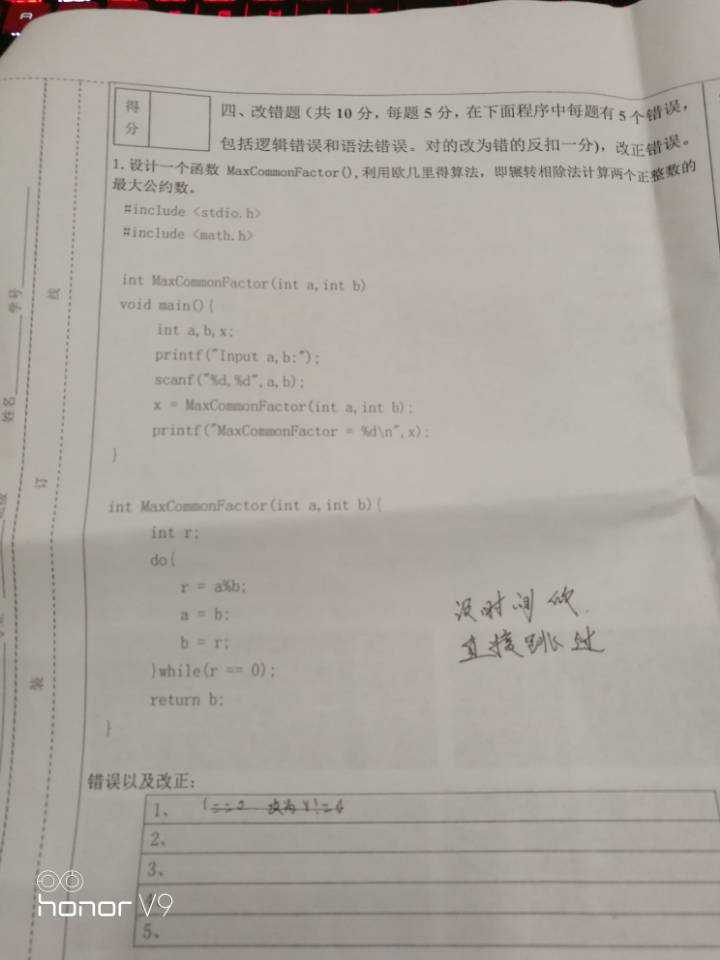 得分
四、改错题(共 10 分，每题 5 分，在下面程序中每题有 5 个错误，
包括逻辑错误和语法错误。对的改为错的反扣一分)，改正错误。
1. 设计一个函数 MaxCommonFactor(), 利用欧几里得算法，即辗转相除法计算两个正整数的
最大公约数。
#include <stdio.h>
#include <math.h>
int MaxCommonFactor(int a,int b)
void main(){
int a,b,x;
printf("Input a,b:");
scanf("%d,%d",a,b);
x = MaxCommonFactor(int a,int b);
printf("MaxCommonFactor = %d\n",x);
}
int MaxCommonFactor(int a,int b){
int r;
do{
r = a%b;
a = b;
b = r;
}while(r == 0);
return b;
}
没时间做
直接跳过
错误以及改正：
1、
2、
3、
4
5、
学号
姓名
线
订
装
honor V9